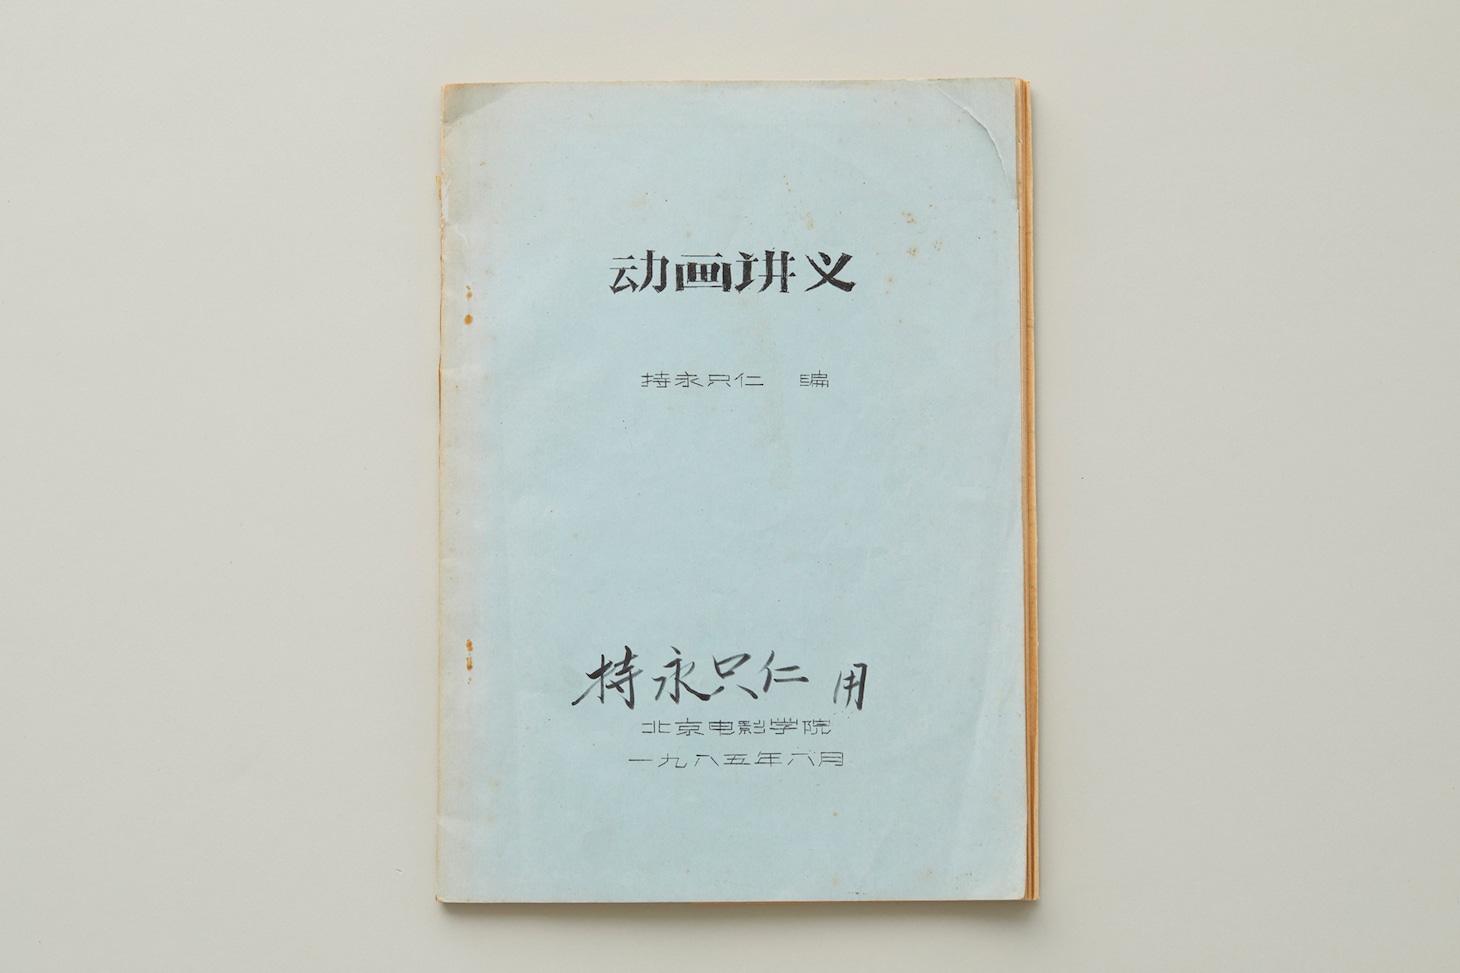 动画讲义
持永只仁 编
持永只仁 用
北京电影学院
一九八五年六月